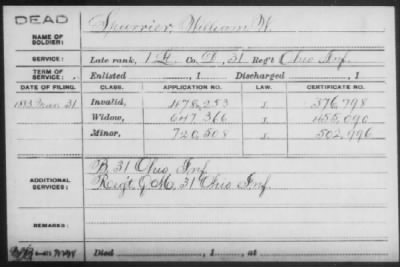 DEAD
NAME OF SOLDIER: Spurrier, William W.
SERVICE: Late rank, 1 Lt Co. D, 31 Reg't Ohio Inf.
TERM OF SERVICE: Enlisted , 1 Discharged , 1
DATE OF FILING. CLASS. APPLICATION NO. LAW. CERTIFICATE NO.
1883 Mar 31 Invalid, 478,253 376,798
Widow, 647,366 455,090
Minor, 720,508 502,996
ADDITIONAL SERVICES: B. 31 Ohio Inf.
Reg't Q M, 31 Ohio Inf.
REMARKS:
Died , 1 , at